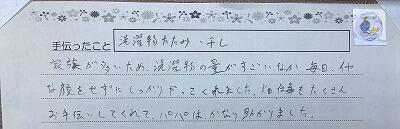 手伝ったこと 洗濯物たたみ・干し
家族が多いため、洗濯物の量がすごいなか毎日、イヤ
な顔をせずにしっかりやってくれました。畑仕事もたくさん
お手伝いしてくれて、パパはかなり助かりました。